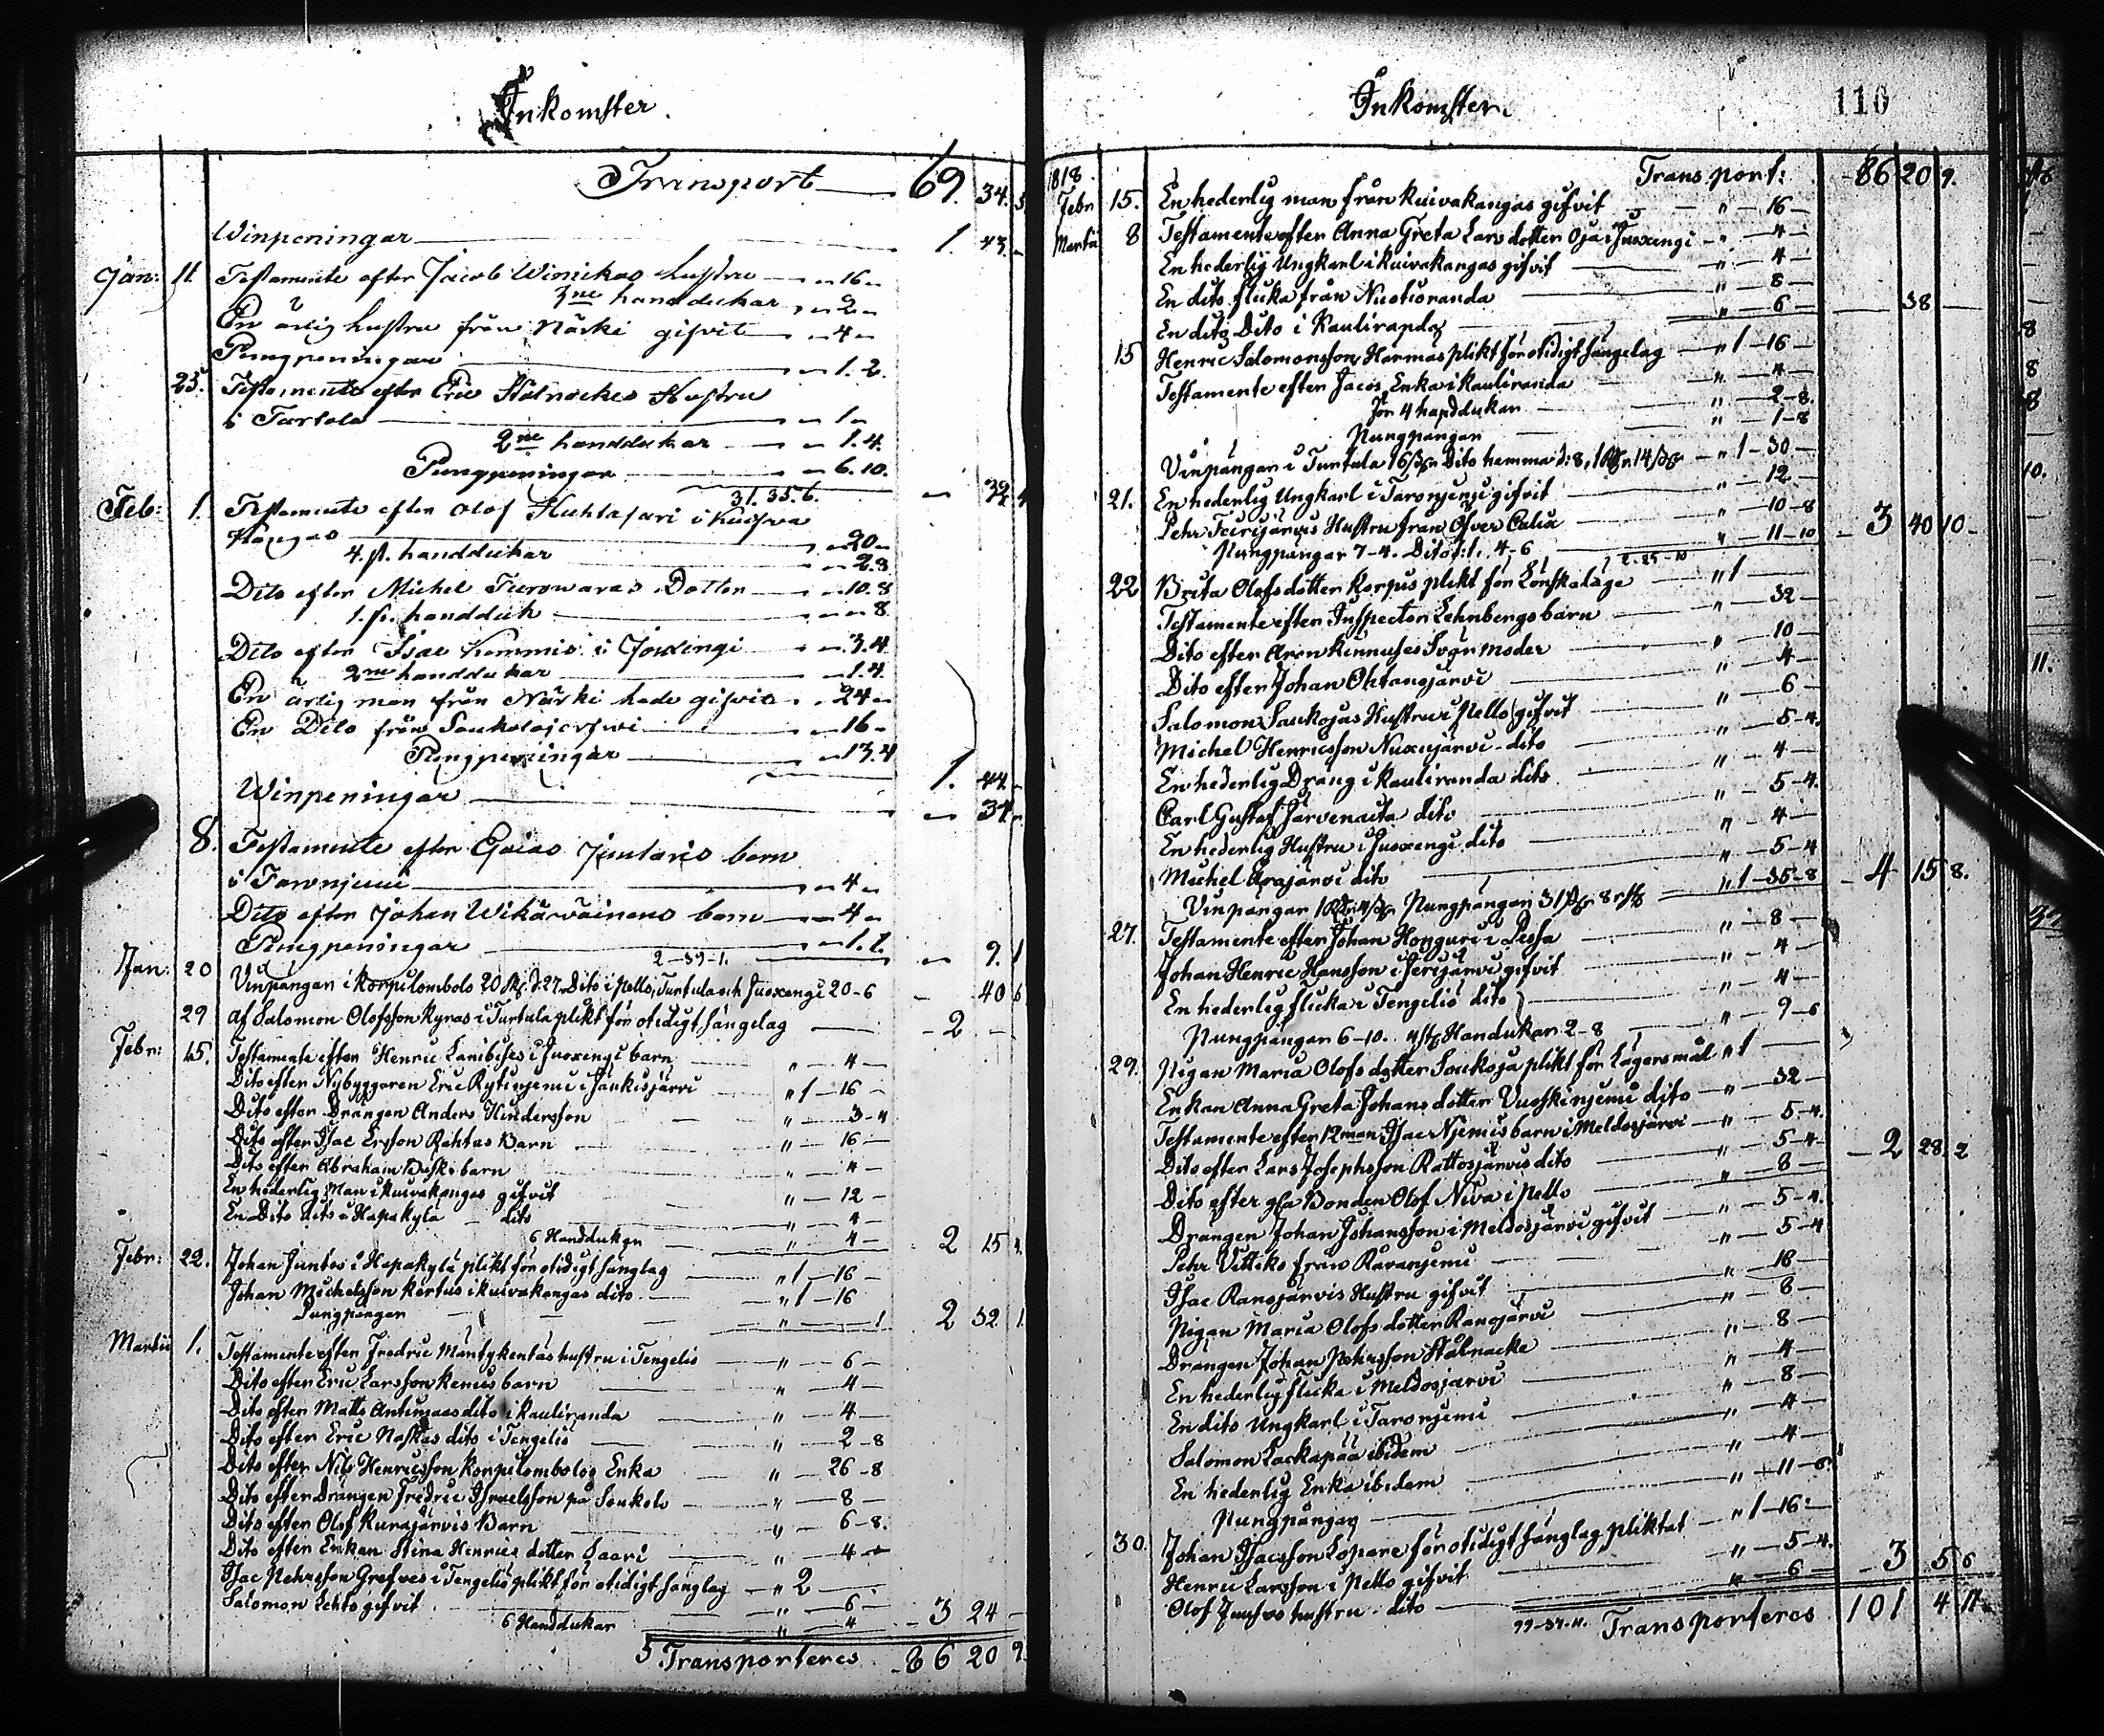 Inkomster.
Transport 69. 34. 5
Winpeningar 1. 43.
Jan: 11. Testamente efter Jacob Winikas hustru " 16 "
3ne handdukar " 2 "
En ärlig hustru från Närki gifvit " 4 "
Pungpeningar " 1. 2.
25. Testamente efter Eric Stålnackes Hustru
i Turtola " 1 "
2ne handdukar " 1. 4.
Pungpeningar " 6. 10.
31. 35. 6.
Feb: 1. Testamente efter Olof Huhtasari i Kuifva
Kangas " 20 "
4. st. handdukar " 2. 8
Dito efter Michel Turowaras Dotter " 10. 8
1. st. handduk " 8.
Dito efter Isac Kemmis i Joxengi " 3. 4
2ne handdukar " 1. 4.
En ärlig man från Närki hade gifvit " 24 "
En Dito från Soukolojerfwi " 16 "
Pungpeningar " 13. 4
1. 44.
Winpeningar 34.
8. Testamente efter Esaias Juntaris barn
i Tawnjemi " 4 "
Dito efter Johan Wikäwäinens barn " 4 "
Pungpeningar " 1. 1.
2-39-1. 9. 1
Jan: 20 Vinpängar i Korpilombolo 20 27 Dito i Pello, Turtula och Juoxengi 20-6 40 6
29 af Salomon Olofsson Kyrös i Turtula plikt för otidigt sängelag 2
Febr: 15. Testamente efter Henric Lambises i Juoxengi barn " 4
Dito efter Nybyggaren Eric Kytinjemi i Jaukisjärvi " 1 - 16
Dito efter Drängen Anders Hindersson " 3 - 4
Dito efter Isac Ersson Rähtas Barn " 16
Dito efter Abraham barn " 4
En hederlig Man i Kuivakangas gifvit " 12
En Dito dito i Hapakylä dito " 4
6 Handdukar " 4 2 15
Febr: 22. Johan Juntos i Hapakylä plikt för otidigt sänglag " 1 - 16
Johan Michelsson Kertus i Kuivakangas dito " 1 - 16
Pungpängar " 1 2 32 1
Martii 1. Testamente efter Fredric Mäntykentäs hustru i Tengelis " 6
Dito efter Eric Larsson Kemis barn " 4
Dito efter Matts dito i Kauliranda " 4
Dito efter Eric dito i Tengelis " 2 - 8
Dito efter Nils Henricsson Korpilombolos Enka " 26 - 8
Dito efter Drängen Fredric Israelsson på Soukolo " 8
Dito efter Olof Kurajärvis Barn " 6 - 8.
Dito efter Enkan Stina Henrics dotter Saari " 4
Isac Pehrsson Grefves i Tengelis plikt för otidigt sänglag " 2
Salomon Lehto gifvit " 6
6 Handdukar " 4 3 24
Transporteres 86 20 9.
Inkomster. 110
1818. Transport: 86 20 9.
Febr 15. En hederlig man från Kuivakangas gifvit " 16
Martii 8 Testamente efter Anna Greta Lars dotter Oja i Juoxengi " 4
En hederlig Ungkarl i Kuivakangas gifvit " 4
En dito flicka från Nuotioranda " 8
En dito Dito i Kauliranda " 6 38
15 Henric Salomonsson Harmas plikt för otidigt sängelag " 1 - 16
Testamente efter Jacos Enka i Kauliranda " 4
för 4 handdukar " 2 - 8.
Pungpängar " 1 - 8
Vinpängar i Turtula 16 Dito hemma " 1 - 30
21. En hederlig Ungkarl i Taronjemi gifvit " 12
Pehr Teurijärvis Hustru från Öfver Calix " 10 - 8
Pungpängar 7-4. Dito 4-6 " 11 - 10 3 40 10
22 Brita Olofsdotter Korpus plikt för Lönskaläge " 1
Testamente efter Inspector Lehnbergs barn " 32
Dito efter Aron Kinnuses Svärmoder " 10
Dito efter Johan Ohtanajärvi " 4
Salomon Saukojas Hustru i Pello gifvit " 6
Michel Henricsson Nuxujärvi dito " 5 - 4.
En hederlig Dräng i Kauliranda dito " 4
Carl Gustaf Järvenaita dito " 5 - 4.
En hederlig Hustru i Juoxengi dito " 4
Michel Arajärvi dito " 5 - 4
Vinpängar Pungpängar 31 " 1 - 35 - 8 4 15 8.
27. Testamente efter Johan Honguri i Pessa " 8
Johan Henric Hansson i Jerijärvi gifvit " 4
En hederlig flicka i Tengelis dito " 4
Pungpängar 6-10. 4 Handukar 2-8 " 9 - 6
29. Pigan Maria Olofs dotter Soukoja plikt för Lägersmål " 1
Enkan Anna Greta Johans dotter Vuoskinjemi dito " 32
Testamente efter 12man Isac Njemis barn i Meldosjärvi " 5 - 4.
Dito efter Lars Josephsson Rattosjärvis dito " 5 - 4 2 28 2
Dito efter gla Bonden Olof Niva i Pello " 8
Drängen Johan Johansson i Meldosjärvi gifvit " 5 - 4.
Pehr Vittiko från Käranjemi " 5 - 4
Isac Ranojärvis Hustru gifvit " 16
Pigan Maria Olofs dotter Ranojärvi " 8
Drängen Johan Pehrsson Stålnacke " 8
En hederlig flicka i Meldosjärvi " 4
En dito Ungkarl i Taronjemi " 8
Salomon Lackapää ibidem " 4
En hederlig Enka ibidem " 4
Pungpängar " 11 - 6.
30. Johan Isacsson Lopare för otidigt sänglag pliktat " 1 - 16
Henric Larsson i Pello gifvit " 5 - 4. 3 5 6
Olof Juusos hustru dito " 6
99-37-11. Transporteres 101 4 11